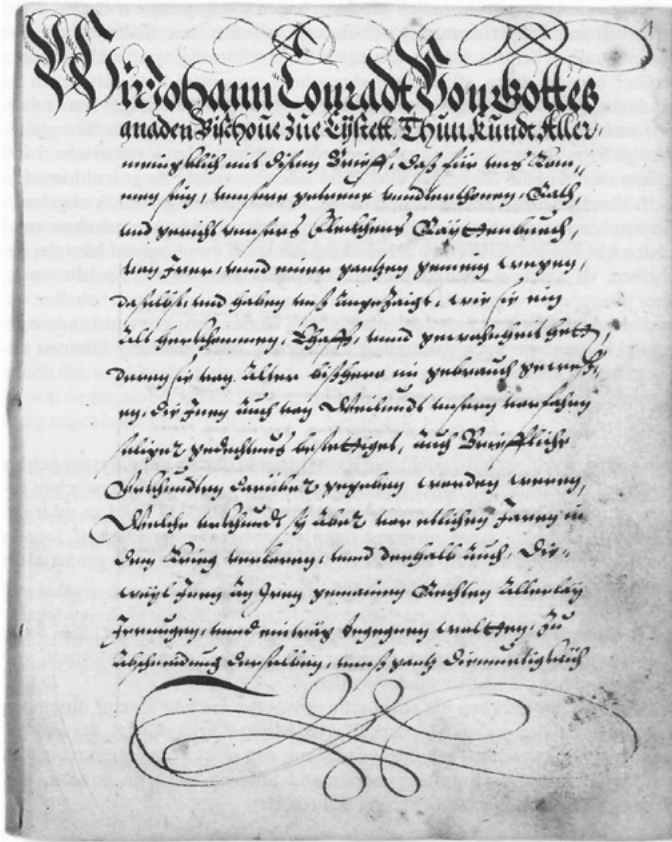 Wir Johann Conradt Von Gottes
gnaden Bischoue zue Eystett, Thun kundt Aller,
meniglich mit disem Brieff, Daß für uns kom-
men sein, unsere getreue unnderthonen, Rath,
und gericht unnsers Fleckhens Raÿttenbuech,
von Irer, unnd einer gantzen gemein wegen,
daselbst, und haben unß angezaigt, wie sie ein
alt herkhommen, Ehaff, unnd gewohnheit hett,
deren sie von Alter bißhero im gebrauch geweß-
en, die Inen auch von Weilundt unsern vorfahrn
seliger gedechtnus bestettiget, auch Brieffliche
Urkhundten darüber gegeben worden weren,
Welche urkhundt sÿ aber vor etlichen Jaren in
dem Krieg verloren, unnd deßhalb auch, die-
weÿl Inen an Iren gemainen Rechten allerlaÿ
Irrungen, unnd eintrag begegnen wolten, zu
abschneidung derselben, unnß gantz diemuetigklich